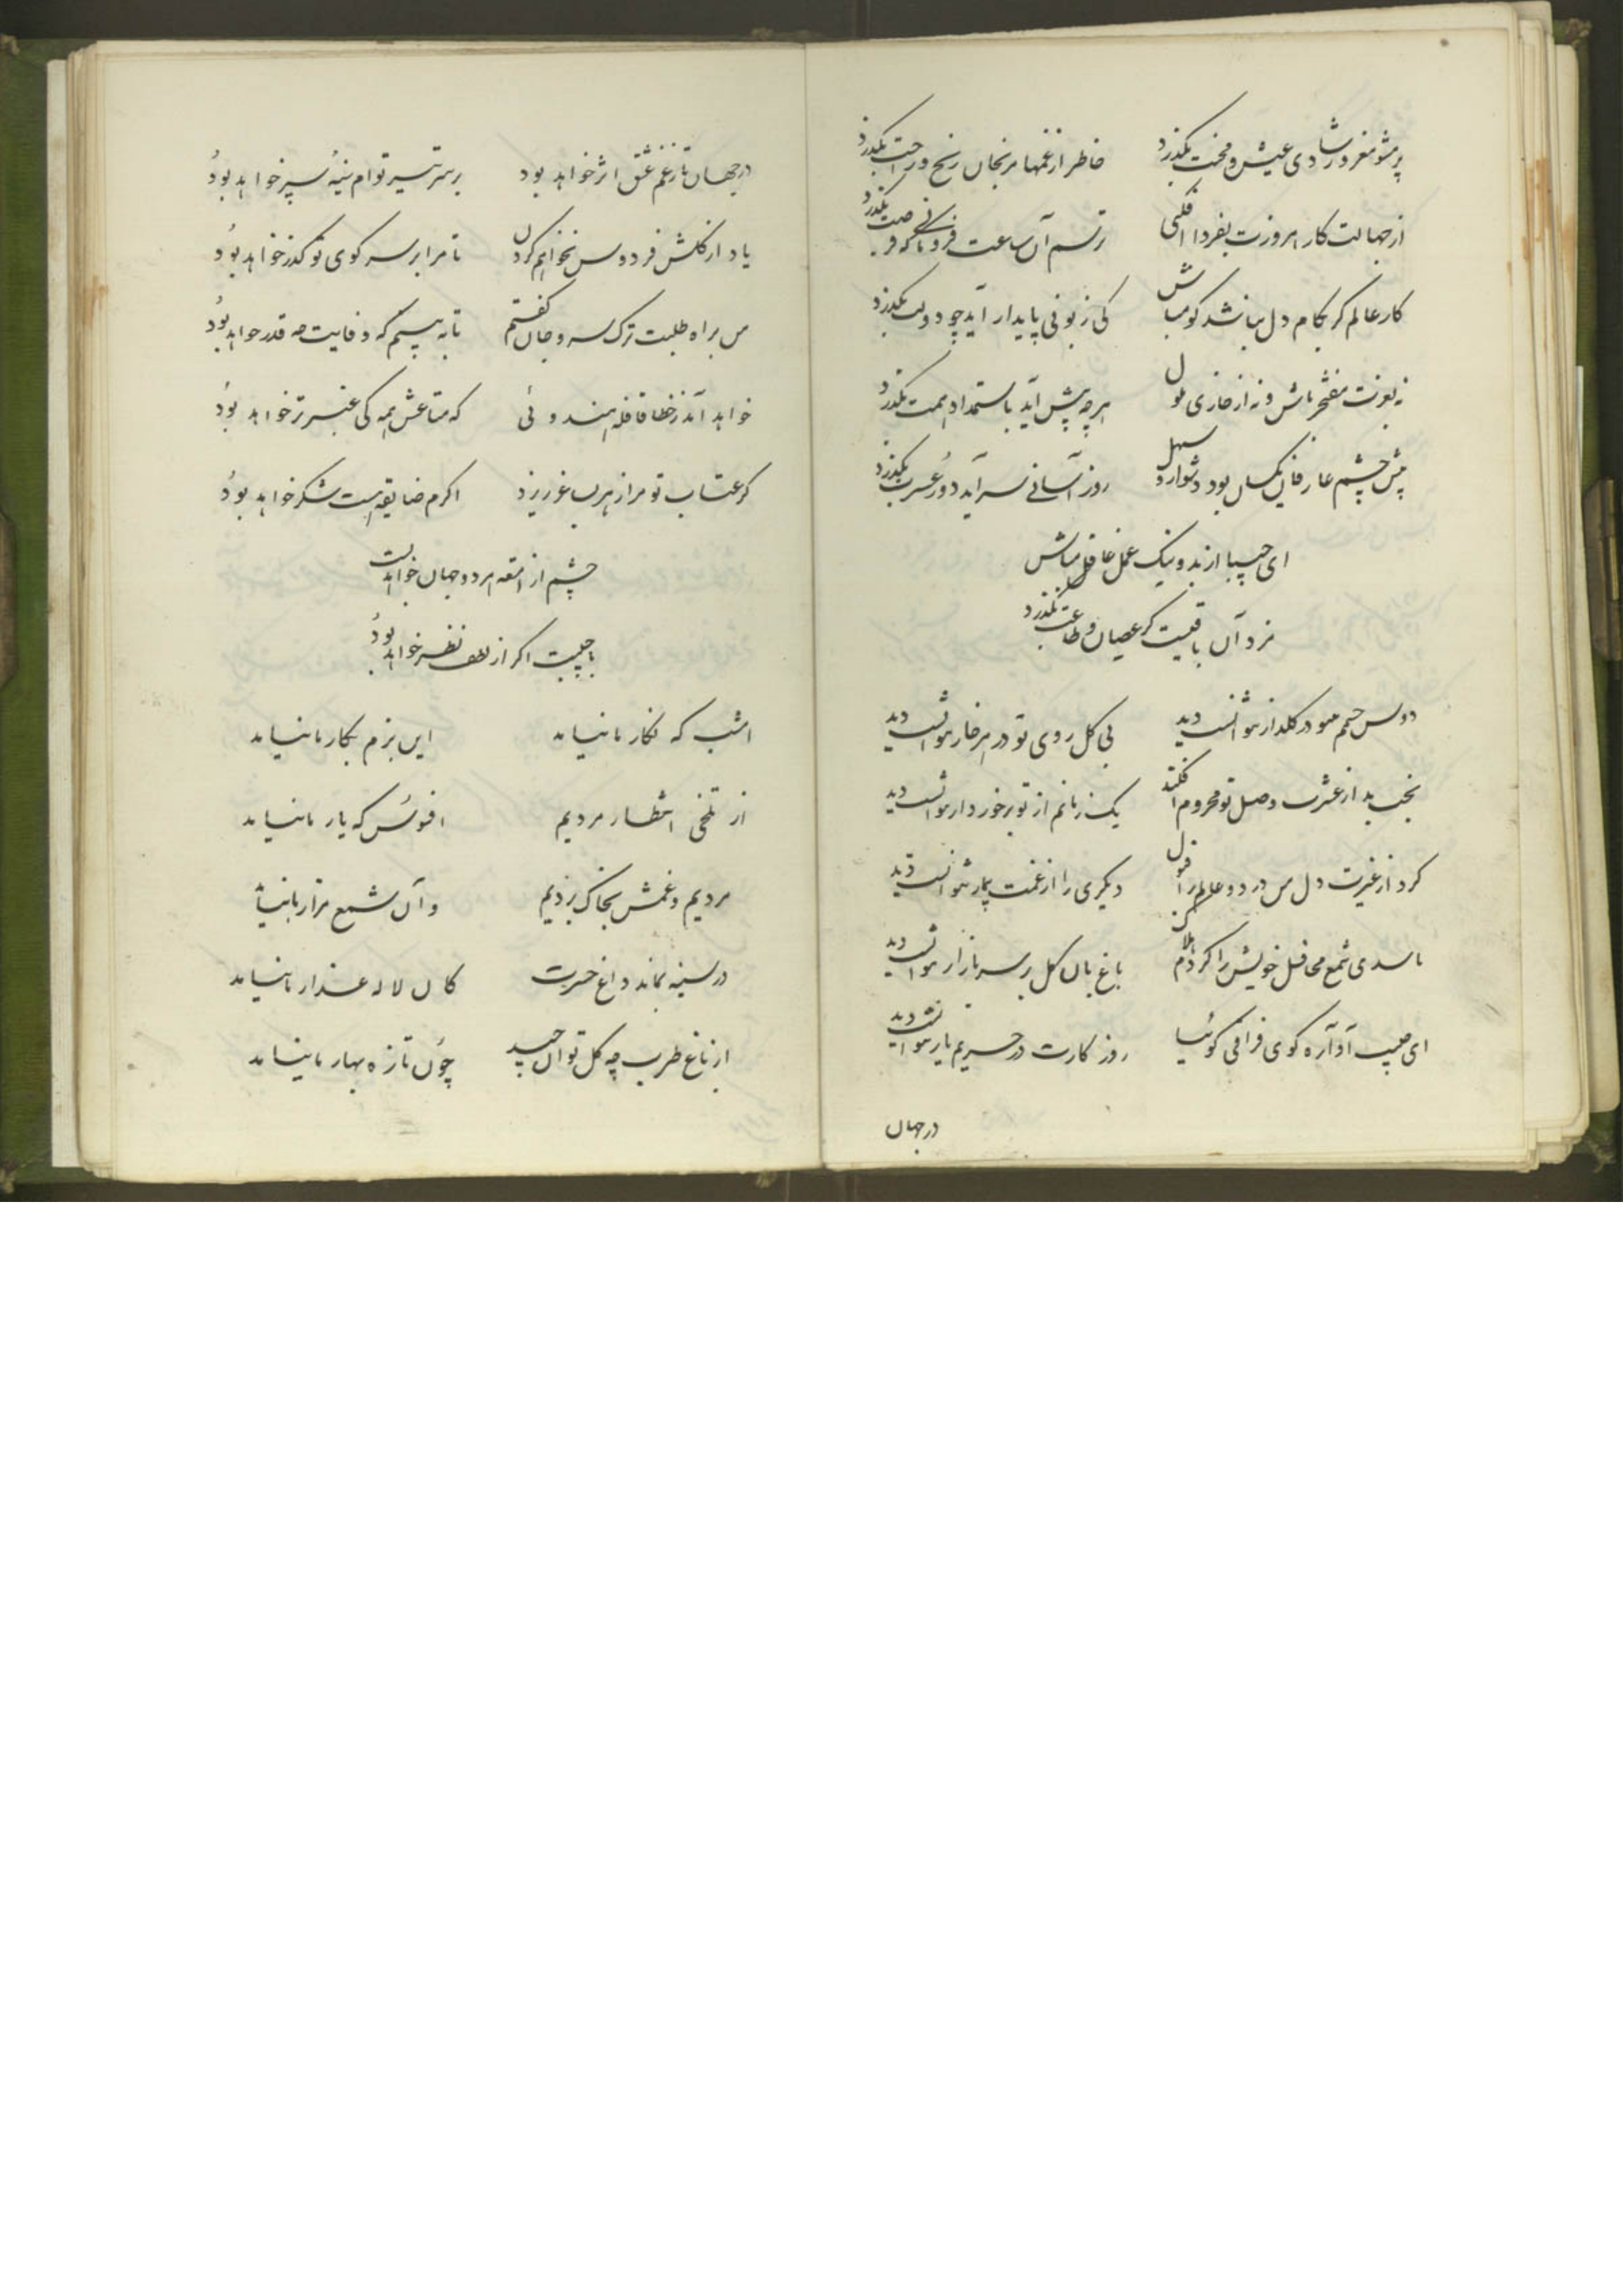 پر مشو مغرور شادی عیش و محنت بگذرد خاطر از غمها مرنجان رنج و راحت بگذرد
از جهالت کار امروزت بفردا افکنی ترسم آن ساعت فرومانی که فرصت بگذرد
کار عالم گر بکام دل نباشد گو مباش کی زبونی پایدار آید چو دولت بگذرد
نه بعزت مفتخر باش و نه از خاری ملول هرچه پیش آید باستمداد همت بگذرد
پیش چشم عارفان یکسان بود دشوار و سهل روز آسانی سرآید دور عسرت بگذرد
ای حبیبا از بد و نیک عمل غافل مباش
مزد آن باقیست گر عصیان و طاعت بگذرد
دوش چشمم در گلزار نتوانست دید بی گل روی تو در هر خار نتوانست دید
بخت بد از عشرت وصل تو محروم افکند یک زمانم از تو برخوردار نتوانست دید
کرد از غیرت دل من درد و عالم را قبول دیگری را از غمت بیمار نتوانست دید
تا شدی شمع محافل خویش را کردم هلاک باغبان گل بر سر بازار نتوانست دید
ای حبیب آواره کوی فراقی گوئیا روزگارت در حریم یار نتوانست دید
در جهان
در جهان تا ز غم عشق اثر خواهد بود بر سر تیر توام سینه سپر خواهد بود
یاد از گلشن فردوس نخواهم کردن تا مرا بر سر کوی تو گذر خواهد بود
من براه طلبت ترک سر و جان گفتم تا به بینم که وفایت چه قدر خواهد بود
خواهد آمد ز خطا قافله هندوئی که متاعش همه کی عنبر تر خواهد بود
گر عتاب تو مرا زهر بساغر ریزد اگرم ضایقه هست شکر خواهد بود
چشم از اقمشه هر دو جهان خواهد بست
با حبیبت اگر از لطف نظر خواهد بود
امشب که نگار ما نیامد این بزم بکار ما نیامد
از تلخی انتظار مردیم افسوس که یار ما نیامد
مردیم و غمش بخاک بردیم و آن شمع مزار ما نیامد
در سینه بماند داغ حسرت کان لاله عذار ما نیامد
از باغ طرب چه گل توان چید چون تازه بهار ما نیامد